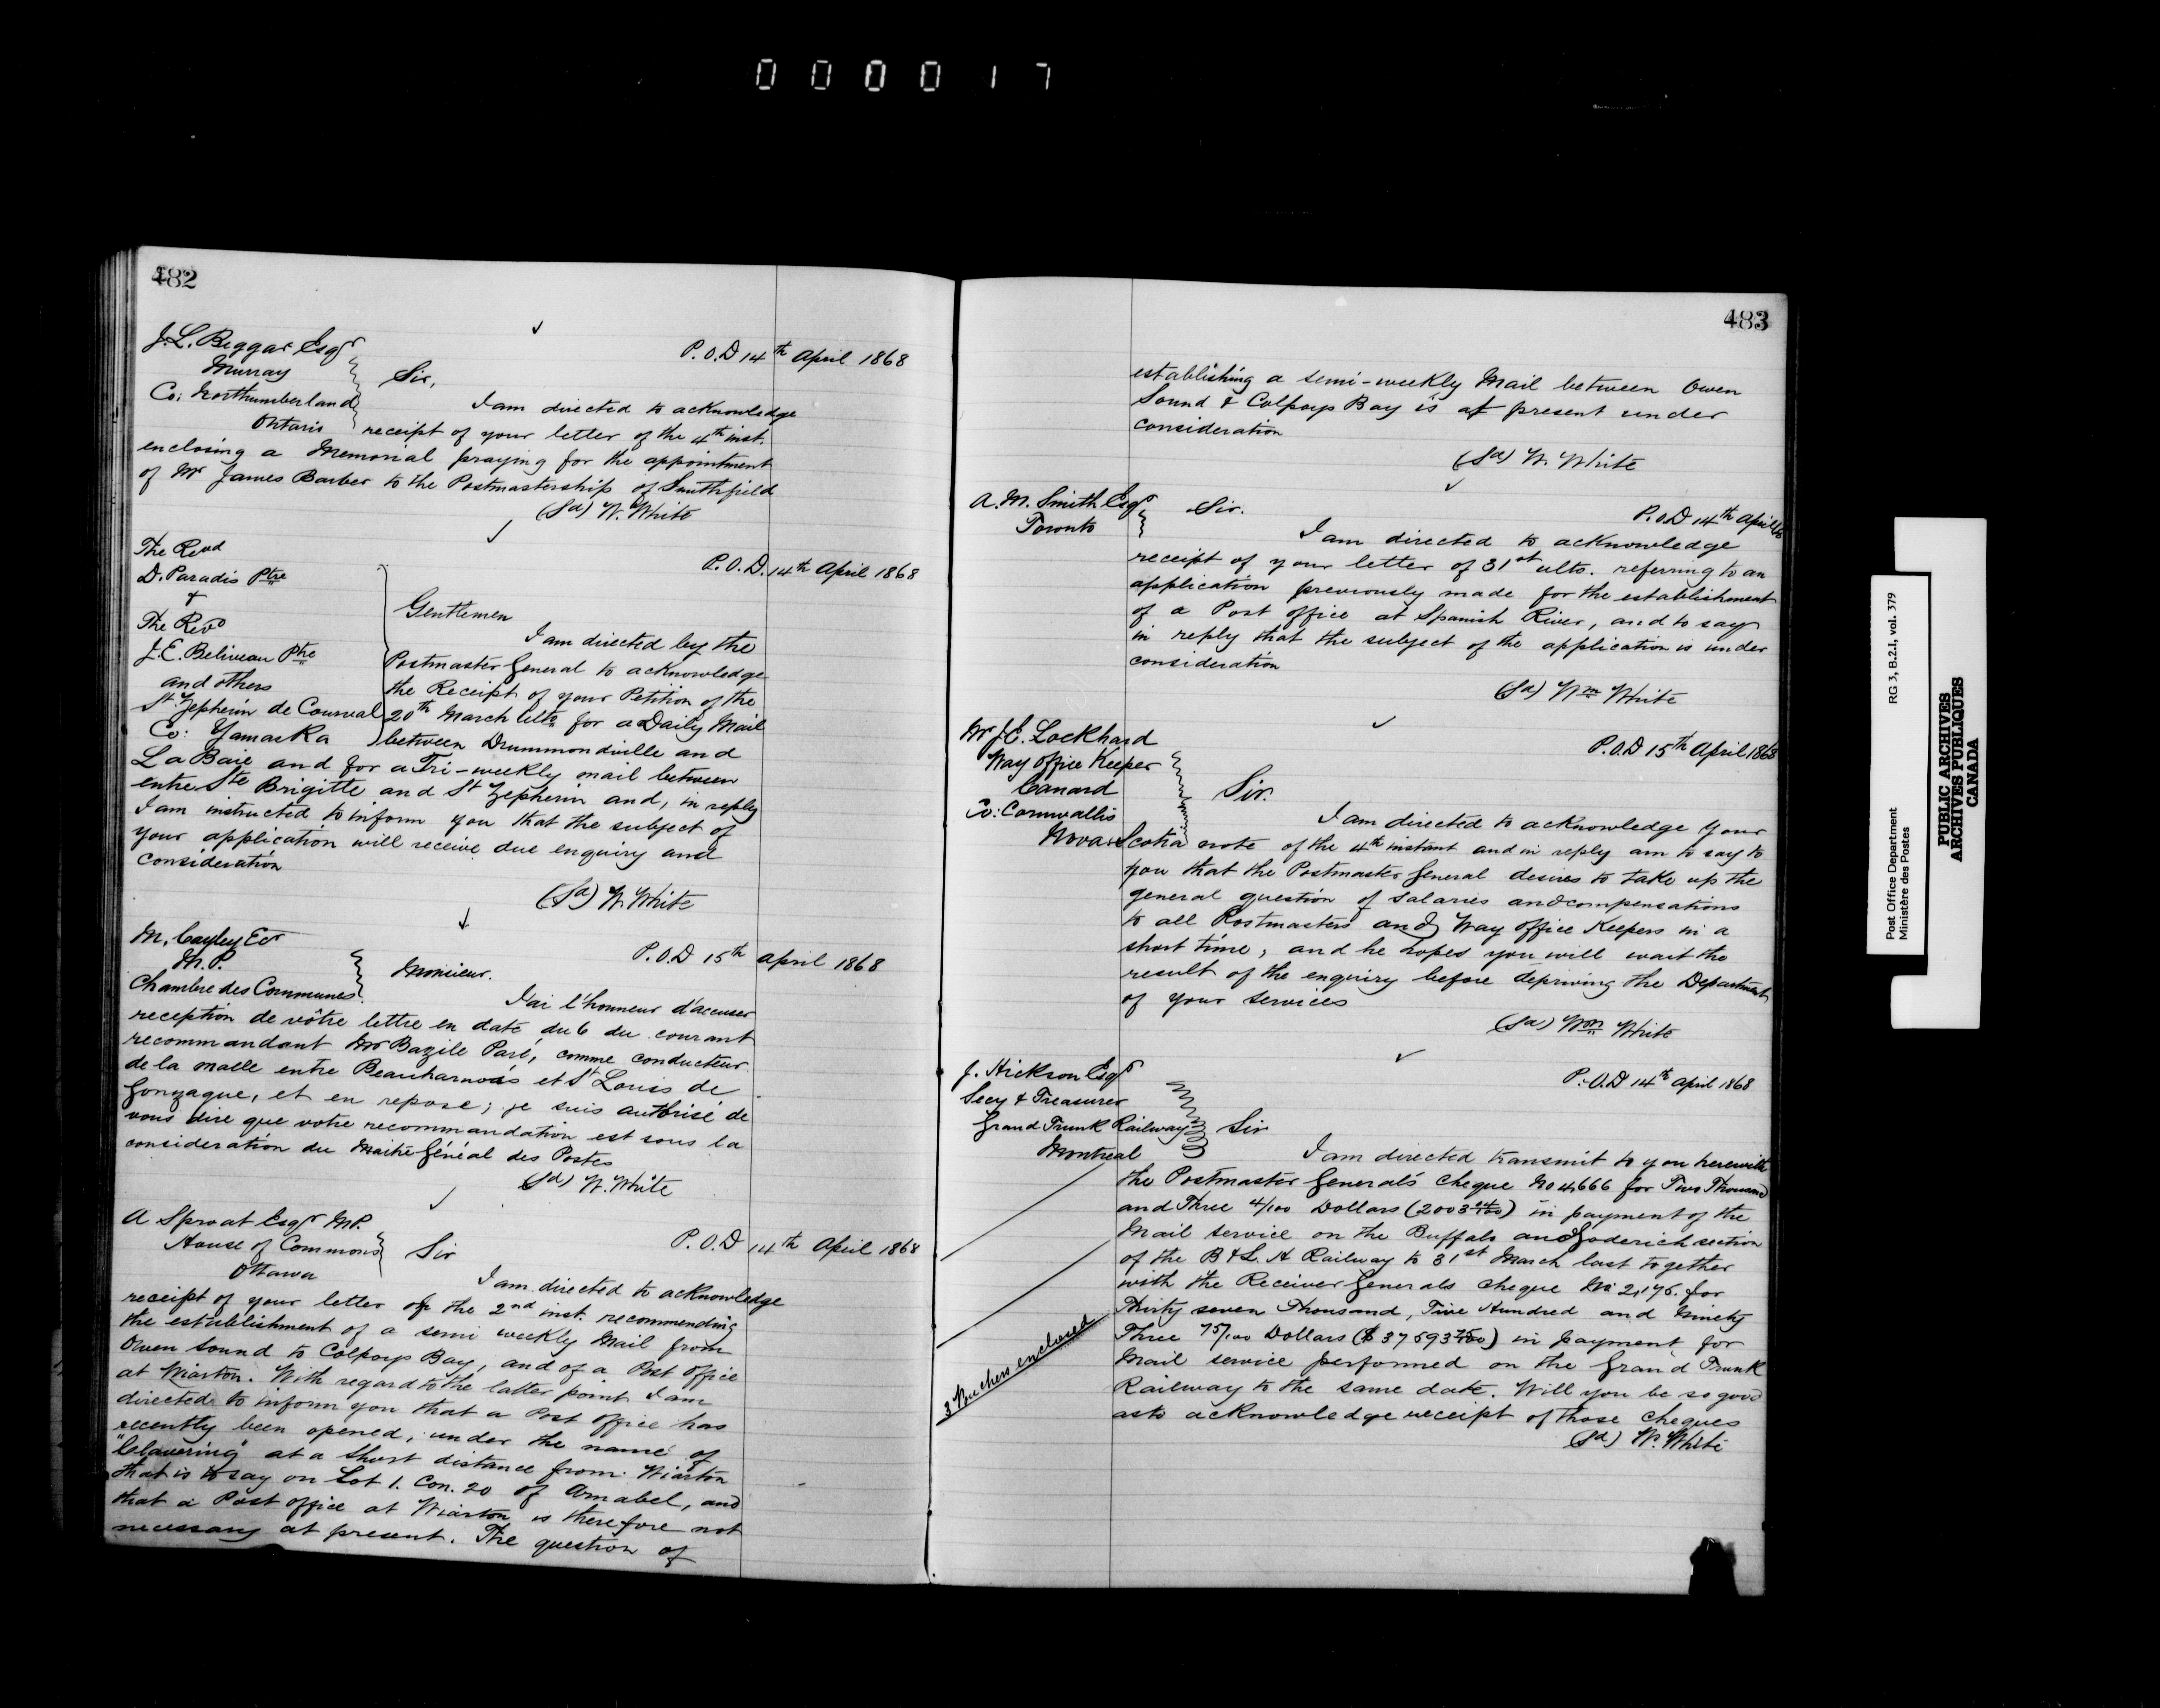 000017
482
J. L. Biggar Esqr
Murray
Co: Northumberland
Ontario
P.O.D 14th April 1868
Sir,
I am directed to acknowledge
receipt of your letter of the 4th inst.
enclosing a Memorial praying for the appointment
of Mr James Barber to the Postmastership of Smithfield
(Sd) W. White
The Revd
D. Paradis Ptre
&
The Revd
J. E. Beliveau Ptre
and others
St Zepherin de Courval
Co: Yamaska
P.O.D. 14th April 1868
Gentlemen
I am directed by the
Postmaster General to acknowledge
the Receipt of your Petition of the
20th March Ulto for a Daily Mail
between Drummondville and
La Baie and for a Tri-weekly mail between
entre Ste Brigitte and St Zepherin and, in reply
I am instructed to inform you that the subject of
your application will receive due enquiry and
consideration
(Sd) W. White
M. Cayley Ecr
M.P.
Chambre des Communes
P.O.D 15th April 1868
Monsieur.
J'ai l'honneur d'accuser
reception de vôtre lettre en date du 6 du courant
recommandant Mr Bazile Paré, comme conducteur
de la malle entre Beauharnois et St Louis de
Gonzague, et en repose; je suis autorisé de
vous dire que votre recommandation est sous la
consideration du Maitre Général des Postes
(Sd) W. White
A Sproat Esqr M.P.
House of Commons
Ottawa
P.O.D 14th April 1868
Sir
I am directed to acknowledge
receipt of your letter of the 2nd inst. recommending
the establishment of a semi weekly Mail from
Owen Sound to Colpoys Bay, and of a Post Office
at Wiarton. With regard to the latter point I am
directed to inform you that a Post Office has
recently been opened, under the name of
"Clavering" at a short distance from Wiarton
that is to say on Lot 1. Con. 20 of Amabel, and
that a Post office at Wiarton is therefore not
necessary at present. The question of
483
establishing a semi-weekly Mail between Owen
Sound & Colpoys Bay is at present under
consideration
(Sd) W. White
A. M. Smith Esqr
Toronto
P.O.D 14th April 68
Sir.
I am directed to acknowledge
receipt of your letter of 31st ulto. referring to an
application previously made for the establishment
of a Post office at Spanish River, and to say
in reply that the subject of the application is under
consideration
(Sd) Wm White
Mr J. E. Lockhard
Way Office Keeper
Canard
Co: Cornwallis
P.O.D 15th April 1868
Sir.
I am directed to acknowledge your
Nova Scotia note of the 4th instant and in reply am to say to
you that the Postmaster General desires to take up the
general question of salaries and compensations
to all Postmasters and Way Office Keepers in a
short time, and he hopes you will wait the
result of the enquiry before depriving the Department
of your services
(Sd) Wm White
J. Hickson Esqr
Secy & Treasurer
Grand Trunk Railway
Montreal
P.O.D 14th April 1868
Sir
I am directed transmit to you herewith
the Postmaster General's cheque No 4666 for Two Thousand
and Three 4/100 Dollars (2003 4/100) in payment of the
Mail service on the Buffalo and Goderich section
of the B & L. H Railway to 31st March last together
with the Receiver Generals cheque No 2,176. for
Thirty seven Thousand, Five Hundred and Ninety
Three 75/100 Dollars ($37593 75/100) in payment for
Mail service performed on the Grand Trunk
Railway to the same date. Will you be so good
as to acknowledge receipt of those cheques
(Sd) W. White
3 Vouchers enclosed
Post Office Department RG 3, B.2.I, vol. 379
Ministère des Postes
PUBLIC ARCHIVES
ARCHIVES PUBLIQUES
CANADA